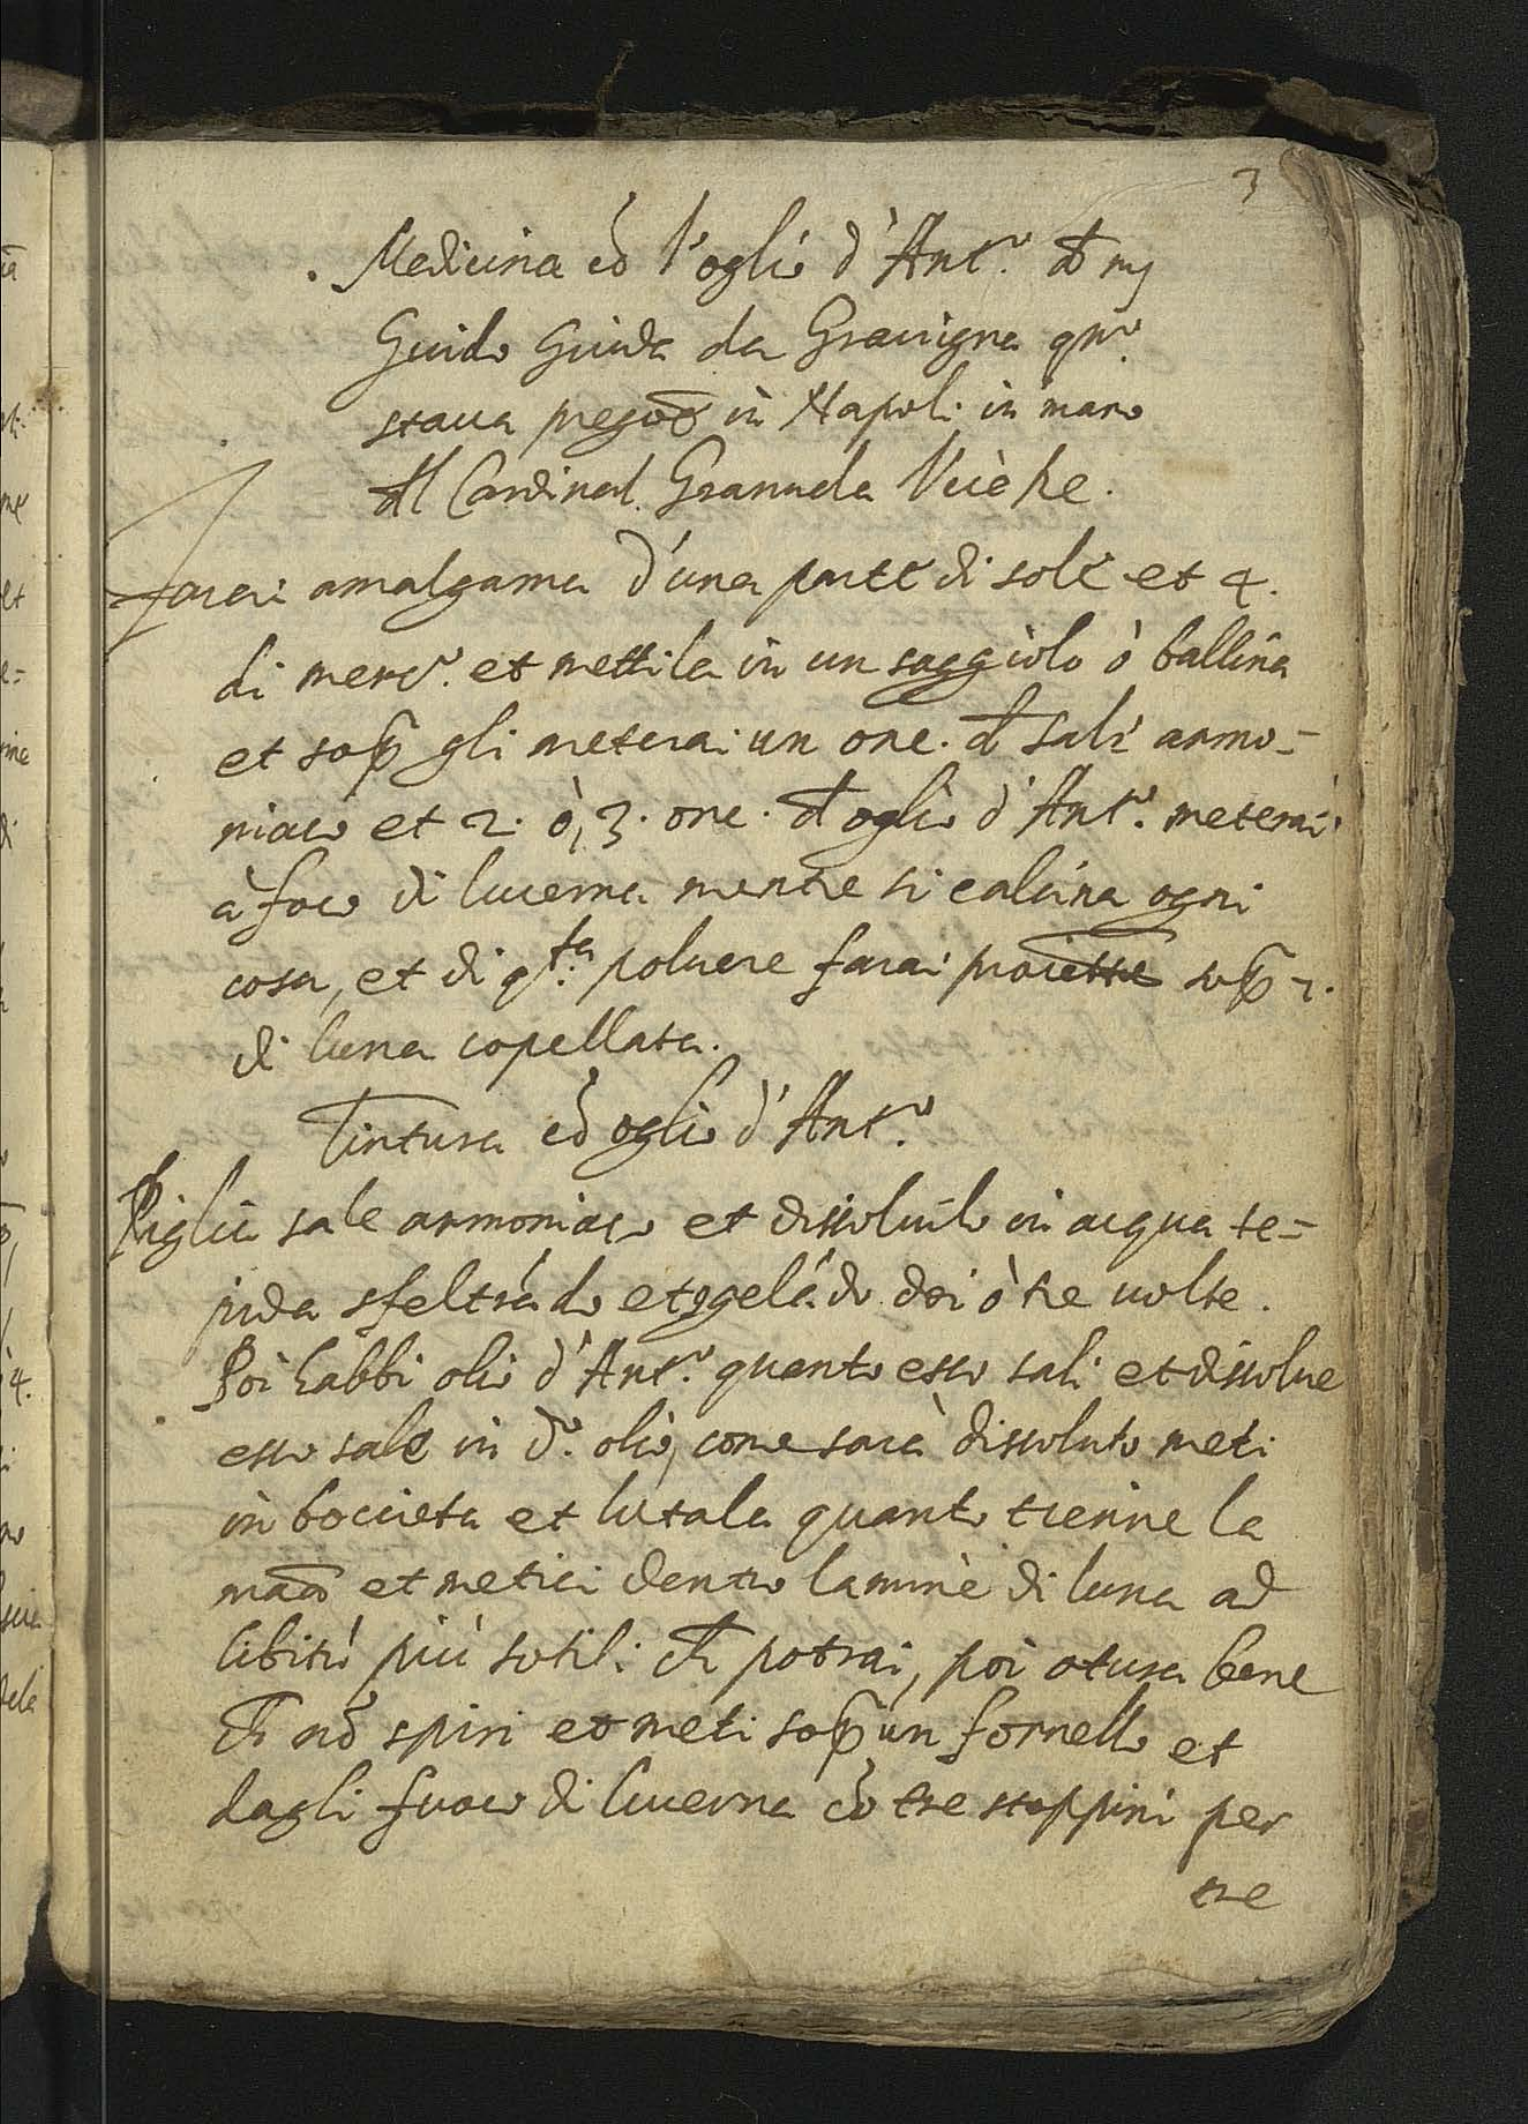 3
. Medicina cō l'oglio d'Ant.º d mʒ
Guido Guida da Gravigna qn.º
staua pregiōe in Napoli in mano
dl Cardinal. Granuela Vicère.
Farai amalgama d'una parte di sole et 4.
di merc.º et mettila in un saggiolo ò ballina
et sop gli meterai un onc. d sali armo=
niaco et 2. ò, 3. onc. d oglio d'Ant.º meterai
à foco di lucerna mentre si calcina ogni
cosa, et di q.ta poluere farai proiettiōe sop 2.
di luna copellata.
Tintura cō oglio d'Ant.º
Piglia sale armoniaco et dissoluilo in acqua te=
pida sfeltrādo et ɔgelādo doi ò tre uolte.
Poi habbi olio d'Ant.º quanto esso sali et dissolue
esso sale in d.º olio, come sarà dissoluto meti
in boccieta et lutala quanto tienne la
māo et metici dentro lamine di luna ad
libitū più sotili ch potrai, poi otura bene
ch nō spiri et meti sop un fornello et
dagli fuoco di lucerna cō tre stoppini per
tre
4.